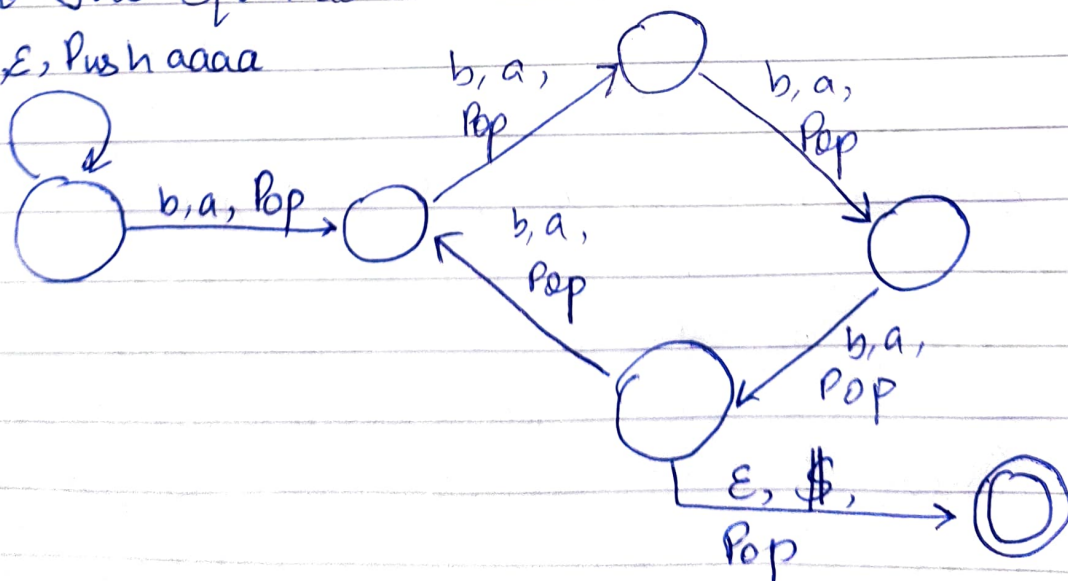 ε, Push aaaa
b, a,
Pop
b, a,
Pop
b,a, Pop
b, a,
Pop
b,a,
Pop
ε, $,
Pop